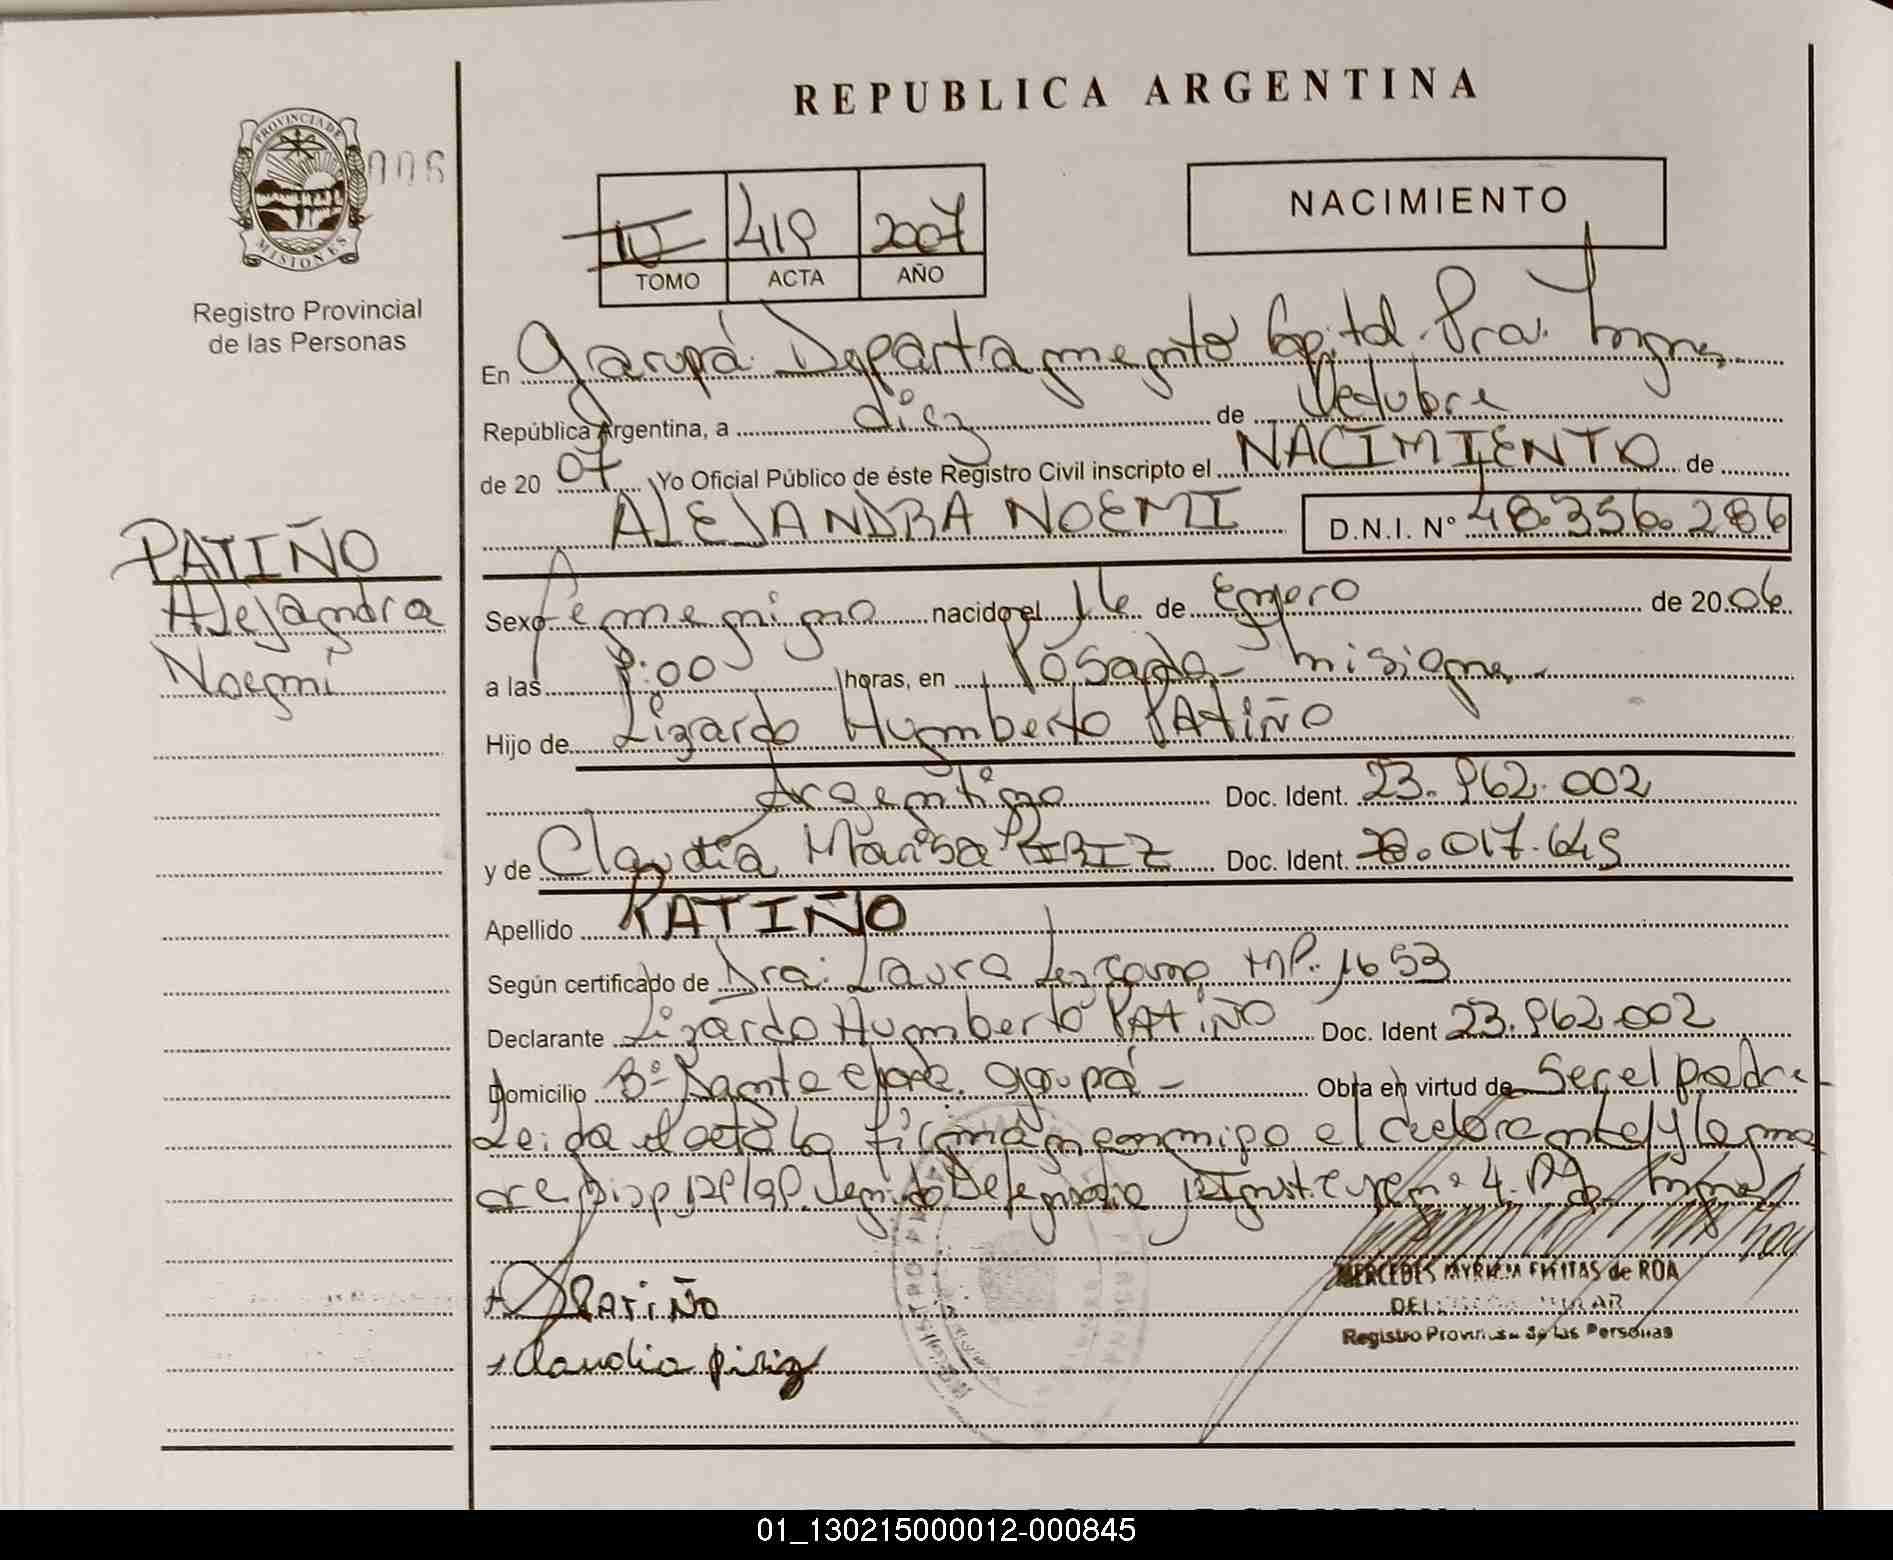 REPUBLICA ARGENTINA
PROVINCIA DE
MISIONES
006
Registro Provincial
de las Personas
IV 419 2007
TOMO ACTA AÑO
NACIMIENTO
En Garupá Departamento Capital Prov. Mnes
República Argentina, a diez de Octubre
de 20 07 Yo Oficial Público de éste Registro Civil inscripto el NACIMIENTO de
ALEJANDRA NOEMI D.N.I. Nº 48.356.286
PATIÑO
Alejandra
Noemi
Sexo femenino nacido el 16 de Enero de 20 06
a las 9:00 horas, en Posadas - Misiones
Hijo de Lizardo Humberto PATIÑO
Argentino Doc. Ident. 23.962.002
y de Claudia Marisa PIRIZ Doc. Ident. .017.645
Apellido PATIÑO
Según certificado de Dra: Laura Lezcano MP. 1653
Declarante Lizardo Humberto PATIÑO Doc. Ident 23.962.002
Domicilio Bº Santa Garupá - Obra en virtud de Ser el padre
Leida el acta la firman conmigo el declarante y la ma
dre Disp
PATIÑO
Claudia piriz
MERCEDES MYRIAM FREITAS de ROA
Registro Provincial de las Personas
01_130215000012-000845